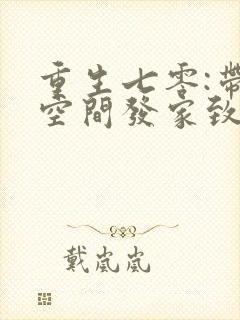 重生七零:帶
空間發家致
戴嵐嵐